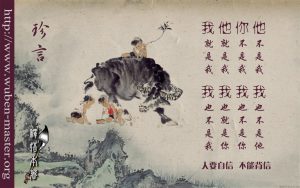 http://www.wuben-master.org
珍言
他不是我 我也不是他
你不是我 我也不是你
他就是我 我也就是你
我就是我 我也不是我
人要自信 不能背信